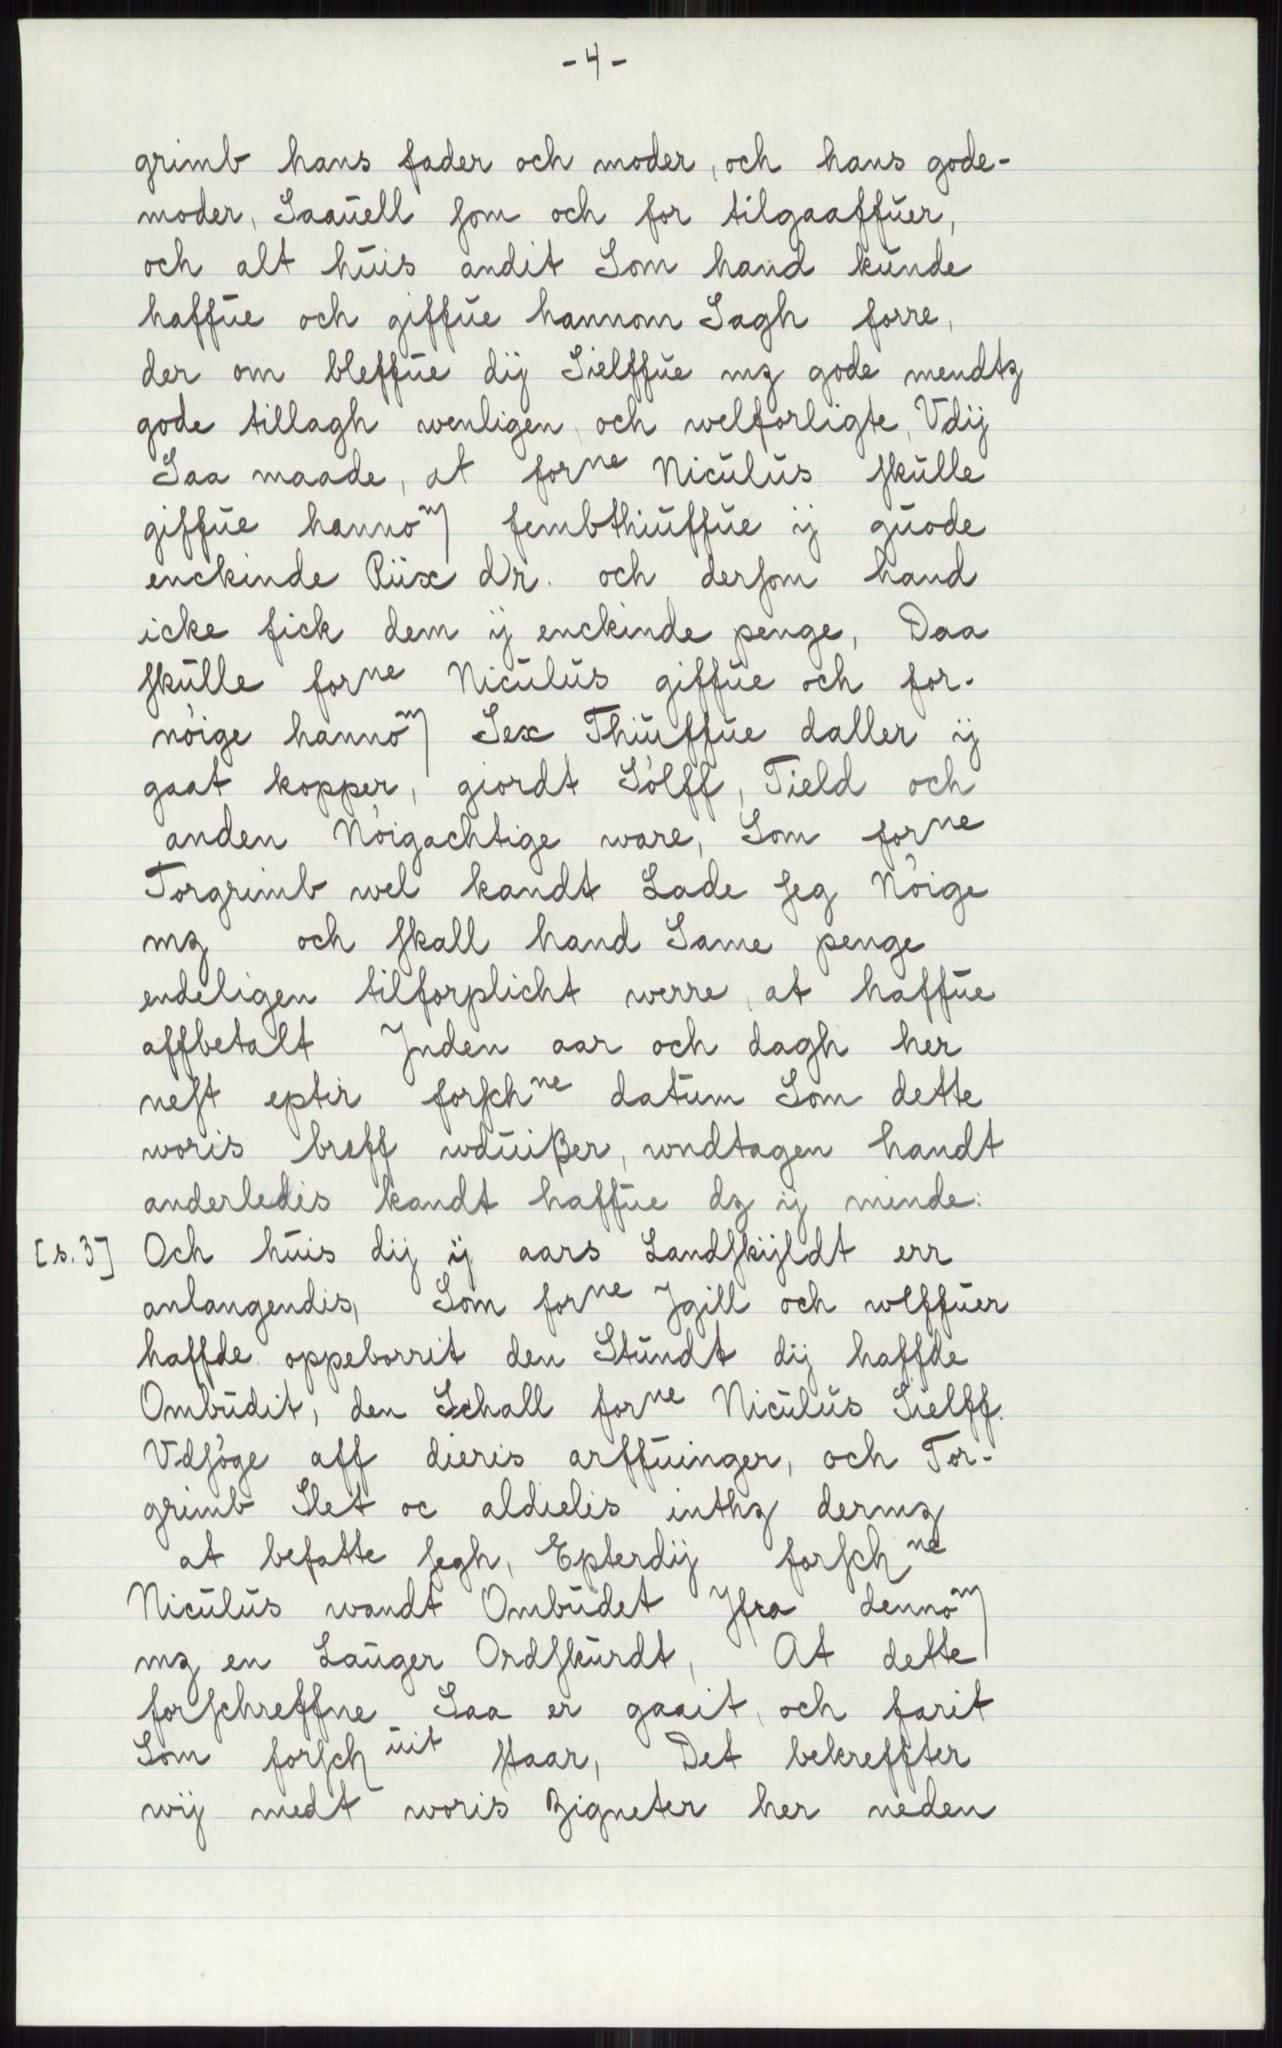 -4-
grimb hans fader och moder, och hans gode-
moder, Saauell som och for tilgaaffuer,
och alt huis andit Som hand kunde
haffue och giffue hannom Sagh forre,
der om bleffue dij Sielffue mz gode mendtz
gode tillagh wenligen, och welforligte, Vdij
Saa maade, at forne Niculus skulle
giffue hannom fembthiuffue ij guode
enckinde Riix dr. och dersom hand
icke fick dem ij enckinde penge, Daa
skulle forne Niculus giffue och for-
nöige hannom Sex Thiuffue daller ij
gaat kopper, giordt Sölff, Tield och
anden Nöigachtige ware, Som forne
Torgrimb wel kandt Lade seg Nöige
mz och skall hand Same penge
endeligen tilforplicht werre, at haffue
affbetalt Jnden aar och dagh her
nest eptir forschne datum Som dette
woris breff wduißer, wndtagen handt
anderledis kandt haffue dz ij minde:
[s. 3] Och huis dij ij aars Landskijldt err
anlangendis, Som forne Jgill och wlffuer
haffde oppeborrit den Stundt dij haffde
Ombudit, den Schall forne Niculus Sielff
Vdsöge aff dieris arffuinger, och Tor-
grimb Slet oc aldielis inthz dermz
at befatte segh, Epterdij forschne
Niculus wandt Ombudet Jfra dennom
mz en Lauger Ordskurdt, At dette
forschreffne Saa er gaait, och farit
Som forschuit staar, Det bekreffter
wij medt woris Zigneter her neden